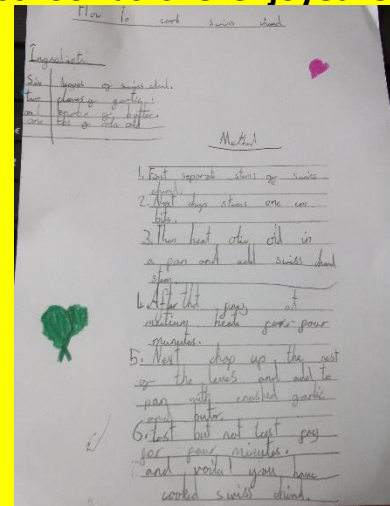 How to cook swiss chard
Ingredients
Six leaves of swiss chard.
two cloves of garlic.
and of butter.
one tbs of oil
Method
1. First separate stems of swiss
chard.
2. Next chop stems one cm
bits.
3. Then heat oliv oil in
a pan and add swiss chard
stem.
4. After that fry at
meduim heate for four
munutes.
5. Next chop up the rest
of the leves and add to
pan with crashed garlic
and butor.
6. Last but not lest fry
for four minutes.
and voila! you have
cooked swiss chard.